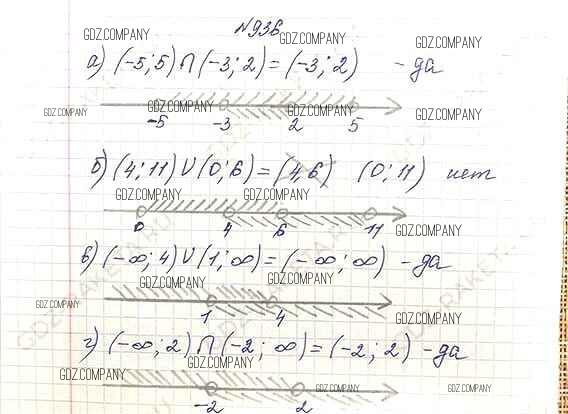 №936
GDZ.COMPANY GDZ.COMPANY GDZ.COMPANY
а) (-5;5)∩(-3;2)=(-3;2) - да
GDZ.COMPANY GDZ.COMPANY GDZ.COMPANY GDZ.COMPANY
-5 -3 2 5
б) (4;11)∪(0;6)=(4,6) (0;11) нет
GDZ.COMPANY GDZ.COMPANY GDZ.COMPANY
0 4 6 11
в) (-∞;4)∪(1;∞)=(-∞;∞) - да
GDZ.COMPANY GDZ.COMPANY GDZ.COMPANY GDZ.COMPANY
1 4
г) (-∞;2)∩(-2;∞)=(-2;2) - да
GDZ.COMPANY GDZ.COMPANY GDZ.COMPANY GDZ.COMPANY
-2 2